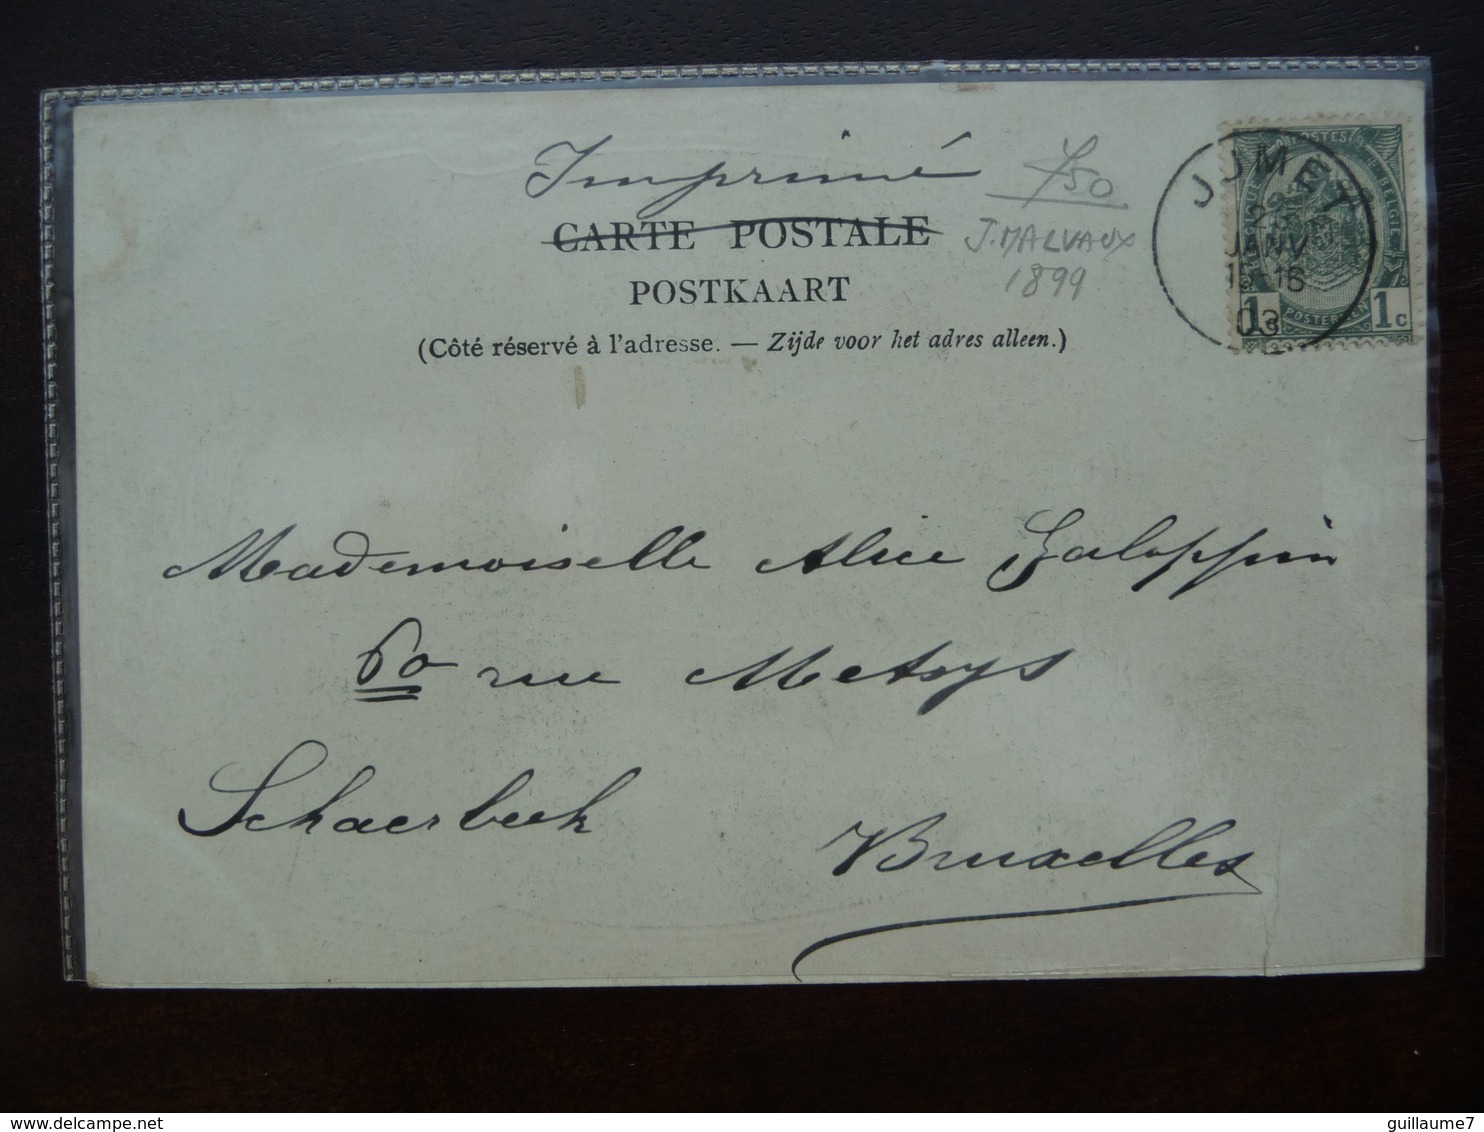 Imprimé
CARTE POSTALE
POSTKAART
(Côté réservé à l'adresse. — Zijde voor het adres alleen.)
J. MALVAUX
1899
JUMET
JANV
03
POSTES
BELGIE
POSTERIJEN
1c
Mademoiselle Alice Galoppin
60 rue Metsys
Schaerbeek
Bruxelles
http://www.delcampe.net
guillaume7